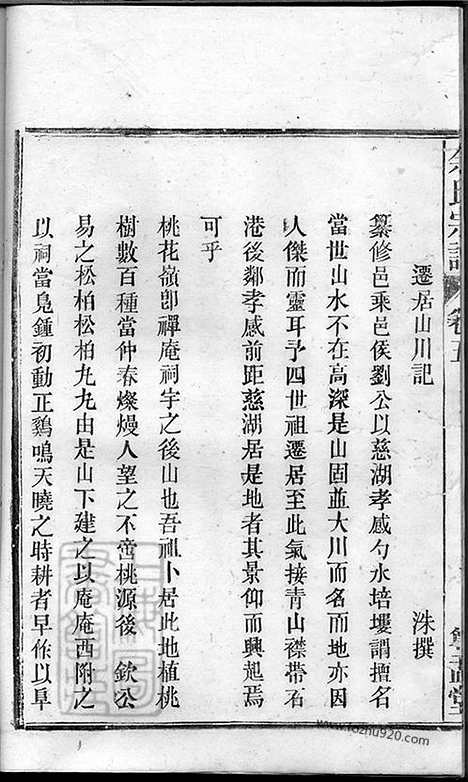 遷居山川記
洙撰
纂修邑乘邑侯劉公以慈湖孝感勺水培塿謂擅名
當世山水不在高深是山固並大川而名而地亦因
人傑而靈耳予四世祖遷居至此氣接青山襟帶石
港後鄰孝感前距慈湖居是地者其景仰而興起焉
可乎
桃花嶺卽禪庵祠宇之後山也吾祖卜居此地植桃
樹數百種當仲春燦熳人望之不啻桃源後 欽公
易之松柏松柏九九由是山下建之以庵庵西附之
以祠當鳧鍾初動正鷄鳴天曉之時耕者早作以早
氏宗譜
卷五
www.fozhu920.com